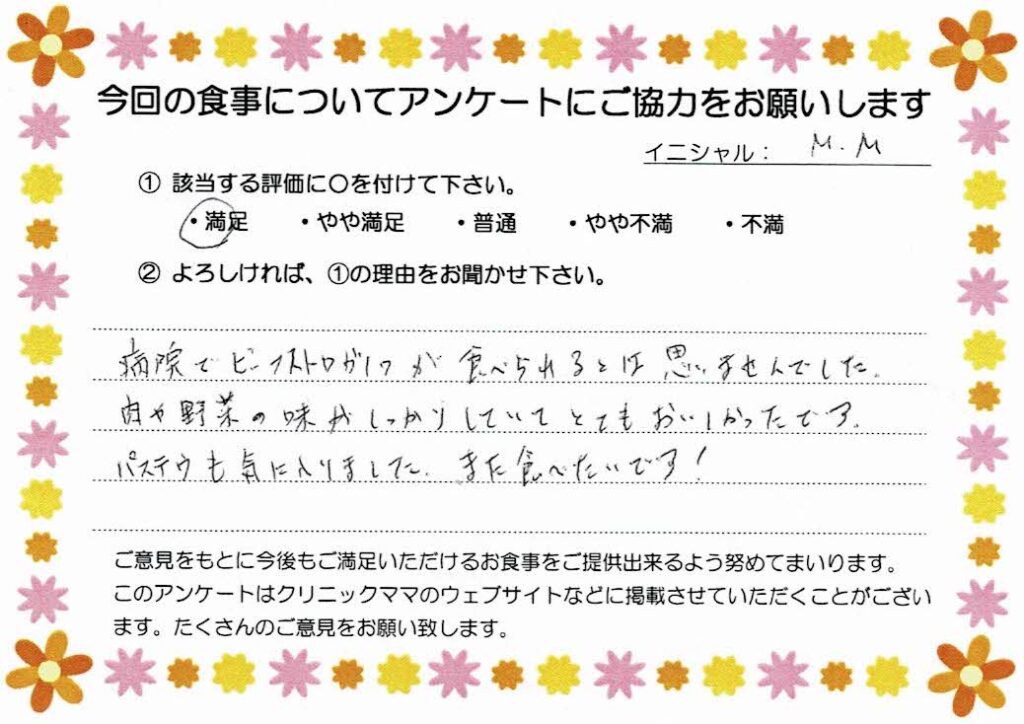 今回の食事についてアンケートにご協力をお願いします
イニシャル： M.M
① 該当する評価に〇を付けて下さい。
・満足 ・やや満足 ・普通 ・やや不満 ・不満
② よろしければ、①の理由をお聞かせ下さい。
病院でビーフストロガノフが食べられるとは思いませんでした。
肉や野菜の味がしっかりしていてとてもおいしかったです。
パステウも気に入りました。また食べたいです！
ご意見をもとに今後もご満足いただけるお食事をご提供出来るよう努めてまいります。
このアンケートはクリニックママのウェブサイトなどに掲載させていただくことがござい
ます。たくさんのご意見をお願い致します。